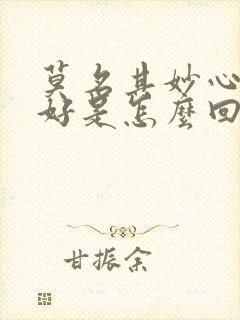 莫名其妙心
好是怎麼回
甘振余